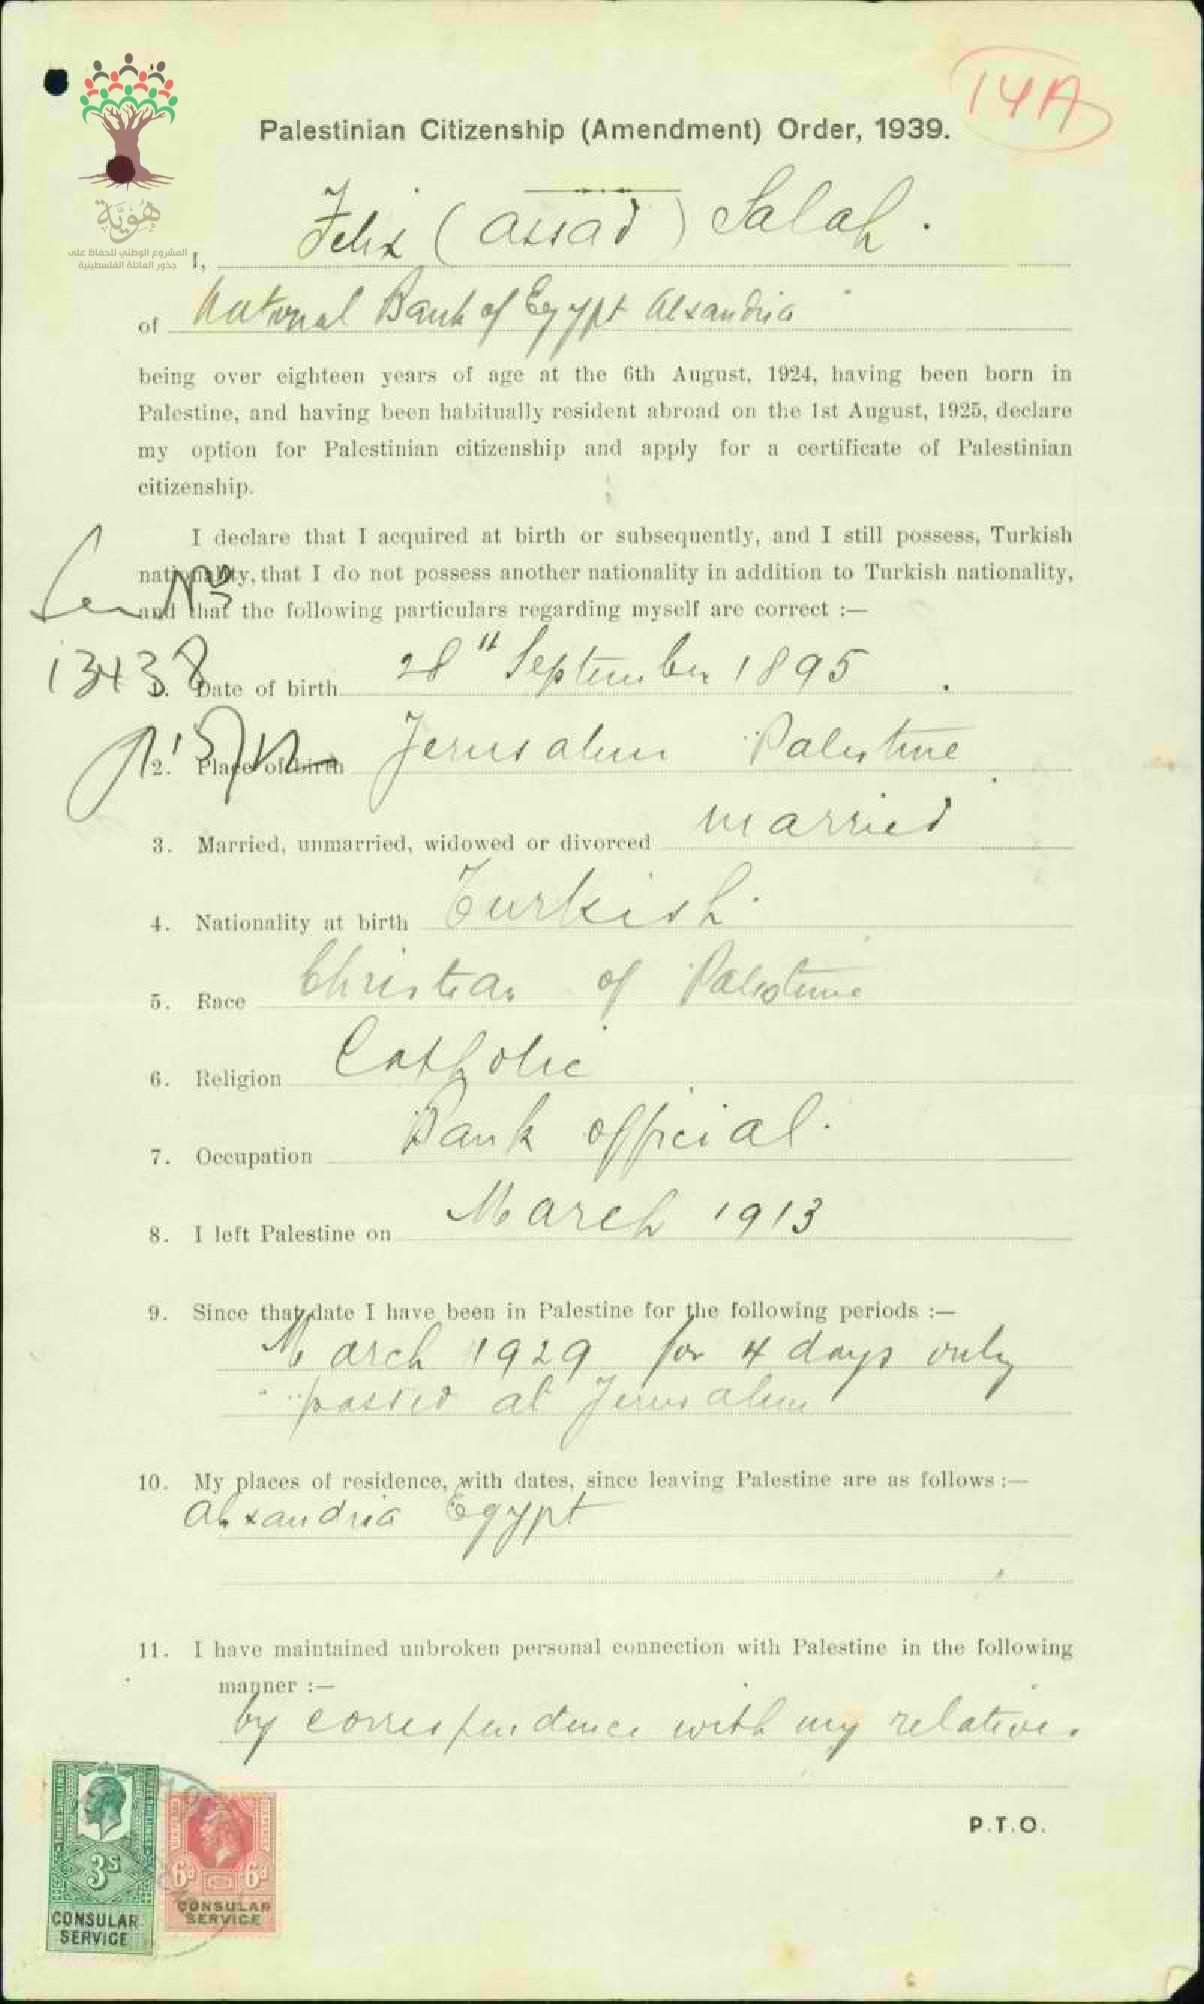 14A
Palestinian Citizenship (Amendment) Order, 1939.
هوية
المشروع الوطني للحفاظ على
جذور العائلة الفلسطينية
I, Felix (Assad) Salah.
of National Bank of Egypt Alexandria
being over eighteen years of age at the 6th August, 1924, having been born in
Palestine, and having been habitually resident abroad on the 1st August, 1925, declare
my option for Palestinian citizenship and apply for a certificate of Palestinian
citizenship.
I declare that I acquired at birth or subsequently, and I still possess, Turkish
nationality, that I do not possess another nationality in addition to Turkish nationality,
and that the following particulars regarding myself are correct :—
13438
1. Date of birth 28th September 1895
2. Place of birth Jerusalem Palestine
3. Married, unmarried, widowed or divorced married
4. Nationality at birth Turkish
5. Race Christian of Palestine
6. Religion Catholic
7. Occupation Bank official.
8. I left Palestine on March 1913
9. Since that date I have been in Palestine for the following periods :—
March 1929 for 4 days only
passed at Jerusalem
10. My places of residence, with dates, since leaving Palestine are as follows :—
Alexandria Egypt
11. I have maintained unbroken personal connection with Palestine in the following
manner :—
by correspondence with my relatives
P.T.O.
3s
CONSULAR
SERVICE
6d 6d
CONSULAR
SERVICE